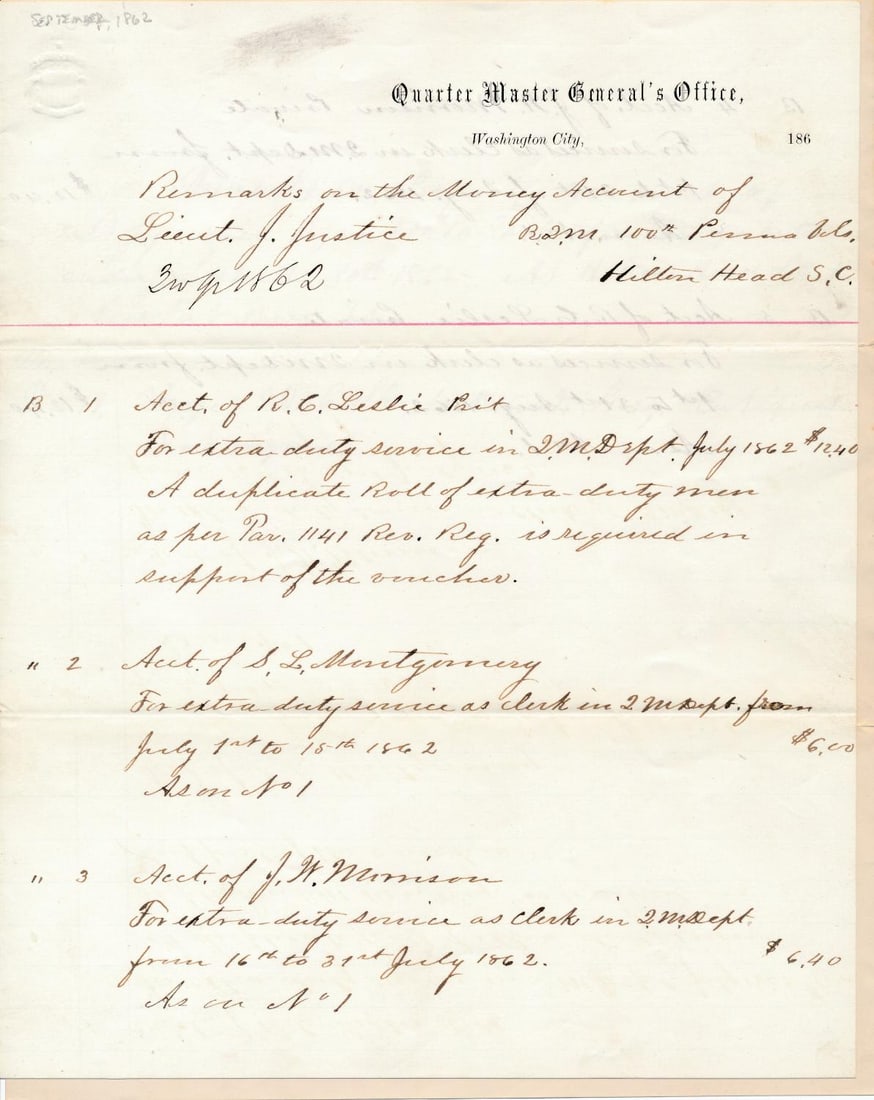 SEPTEMBER, 1862
Quarter Master General's Office,
Washington City, 186
Remarks on the Money Account of
Lieut. J. Justice R.Q.M. 100th Penna Vols.
1862 Hilton Head S.C.
B 1 Acct. of R. C. Leslie Prit
For extra-duty service in Q.M.Dept. July 1862 $12.40
A duplicate Roll of extra-duty men
as per Par. 1141 Rev. Reg. is required in
support of the voucher.
" 2 Acct. of S. L. Montgomery
For extra-duty service as clerk in Q.M.Dept. from
July 1st to 15th 1862 $6.00
As on No 1
" 3 Acct. of J. W. Morrison
For extra-duty service as Clerk in Q.M.Dept.
from 16th to 31st July 1862. $6.40
As on No 1